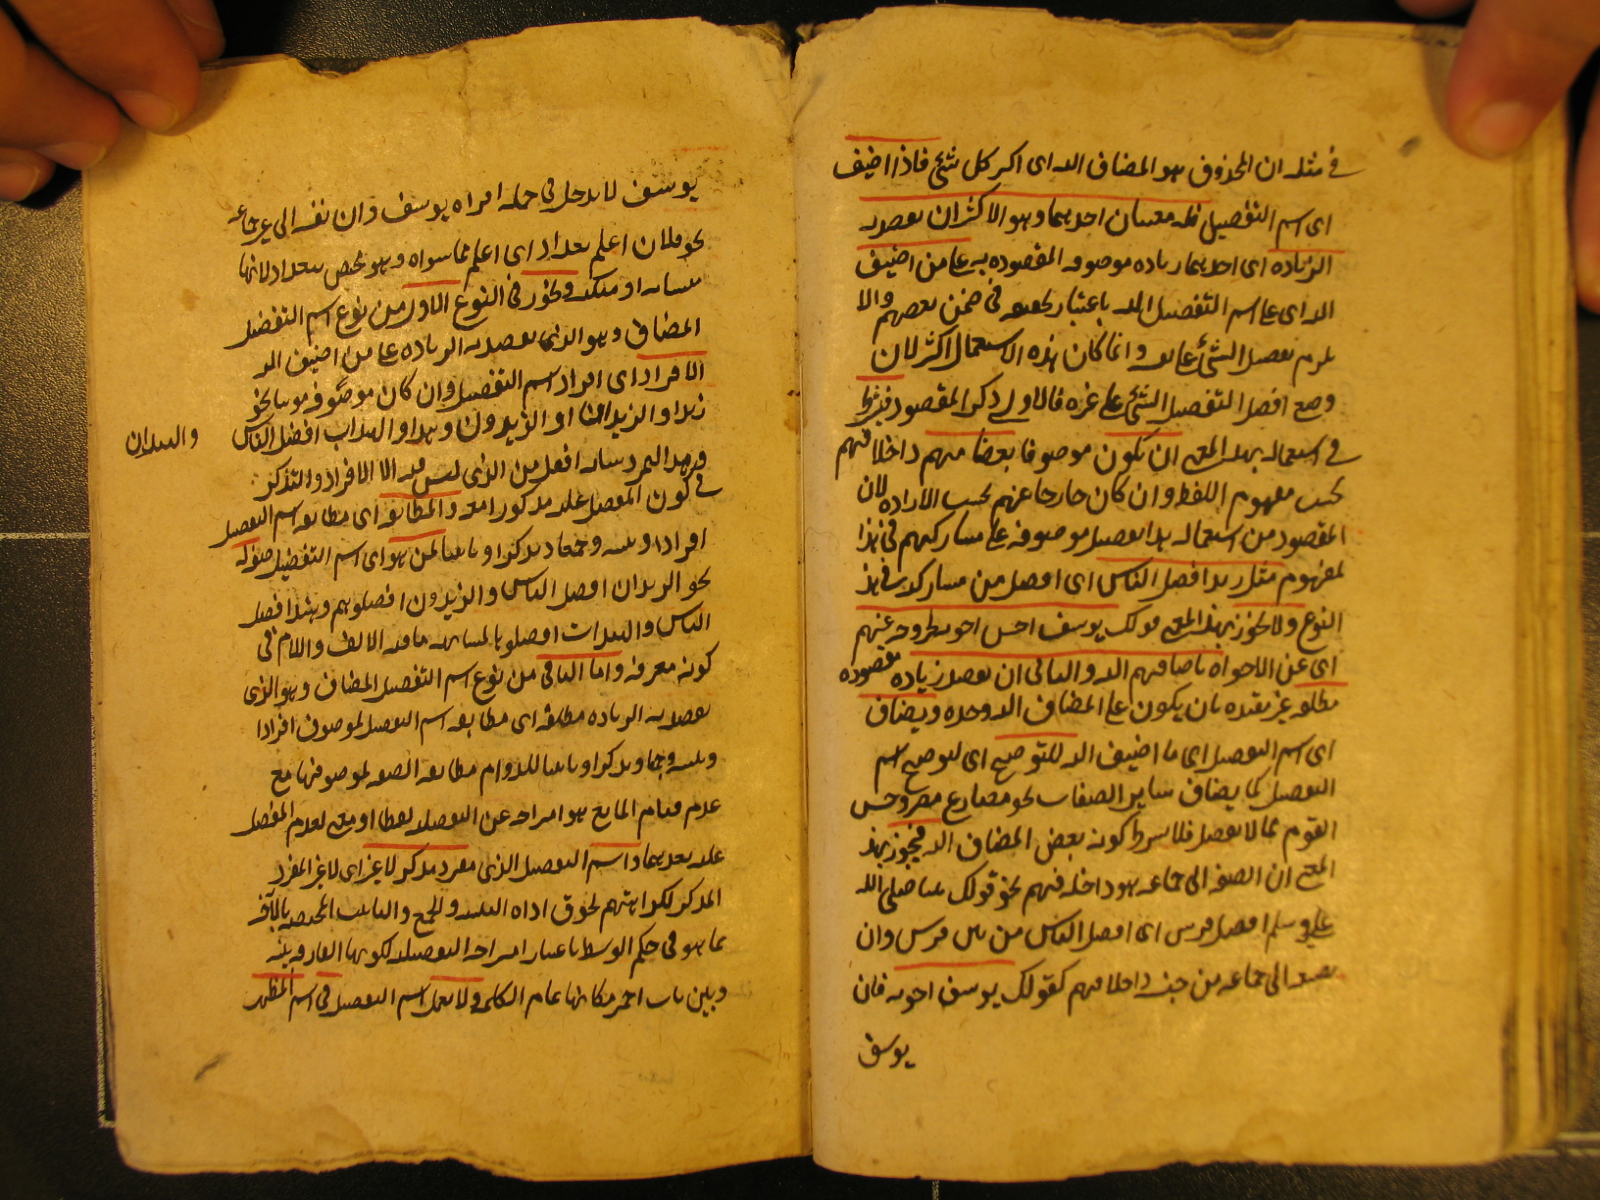 في مثله ان المحذوف هو المضاف اليه اى اكبر كل شئ فاذا اضيف
اى اسم التفضيل فله معنيان احدهما وهو الاكثر ان يقصد به
الزياده اى احدهما زياده موصوفه المقصوده به على من اضيف
اليه اى على اسم التفضيل اليه باعتبار تحققه في ضمن بعضهم والا
يلزم تفضيل الشئ على نفسه وانما كان هذه الاستعمال اكثر لان
وضع افعل التفضيل الشئ على غيره فالاولى ذكر المقصود فيشترط
في استعماله بهذا المعنى ان يكون موصوفا بعضا منهم داخلا فيهم
بحسب مفهوم اللفظ وان كان خارجا عنهم بحسب الاراده لان
المقصود من استعماله هذا تفضيل موصوفه على مشاركيهم في هذا
لمفهوم مثل زيد افضل الناس اى افضل من مشاركيه في هذ
النوع ولا يجوز بهذا المعنى قولك يوسف احسن اخوته لخروجه عنهم
اى عن الاخواه باضافتهم اليه والثاني ان يقصد زياده مقصوده
مطلقه غير مقيده بان يكون على المضاف اليه وحده ويضاف
اى اسم التفضيل اى ما اضيف اليه للتوضيح اى لتوضيح اسم
التفضيل كما يضاف ساير الصفات نحو مصارع مصر وحسن
القوم مما لا تفضيل فلا يشترط كونه بعض المضاف اليه فيجوز بهذ
المعنى ان الصفه الى جماعه هو داخله فيهم نحو قولك نبينا صلى الله
عليه وسلم افضل قريش اى افضل الناس من بين قريش وان
تضيفه الى جماعه من جنسه داخلا فيهم كقولك يوسف اخوته فان
يوسف
يوسف لا يدخل في جمله اخواه يوسف وان تضيفه الى غير جماعه
نحو فلان اعلم بغداد اى اعلم مما سواه وهو مختص ببغداد لانها
منشاءه او مسكنه ويجوز في النوع الاول من نوع اسم التفضيل
المضاف وهو الذى يقصد به الزياده على من اضيف اليه
الافراد اى افراد اسم التفضيل وان كان موصوفه مونثا نحو
زيد او الزيدان او الزيدون وهند او الهندات افضل الناس
والهندان
وهذا لمشابهته افعل من الذى ليس فيه الا الافراد والتذكير
في كون المفضل عليه مذكورا معه والمطابقه اى مطابقه اسم التفضيل
افرادا وتثنيه وجمعا وتذكيرا وتانيثا لمن هو اى اسم التفضيل صفه له
نحو الزيدان افضل الناس والزيدون افضلوهم وهند افضل
الناس والهندات افضلوها لمشابهته مافيه الالف واللام في
كونه معرفه واما الثاني من نوع اسم التفضيل المضاف وهو الذى
يقصد به الزياده مطلقه اى مطابقه اسم التفضيل لموصوف افرادا
وتثنيه وجمعا وتذكيرا وتانيثا للدوام مطابقه الصفه لموصوفها مع
عدم قيام المانع هو امتزاجه عن التفضيليه لفظا او معنى لعدم المفضل
عليه بعدهما واسم التفضيل الذى مفرد مذكر لا غير اى لا غير المفرد
المذكر لكراهتهم لحوق اداه التثنيه والجمع والتانيث المختصه بالاخر
بما هو في حكم الوسط باعتبار امتزاجه التفضيليه لكونها الفارقه بينه
وبين باب احمر مكانها تمام الكلمه ولا يعمل اسم التفضيل في اسم المظهر